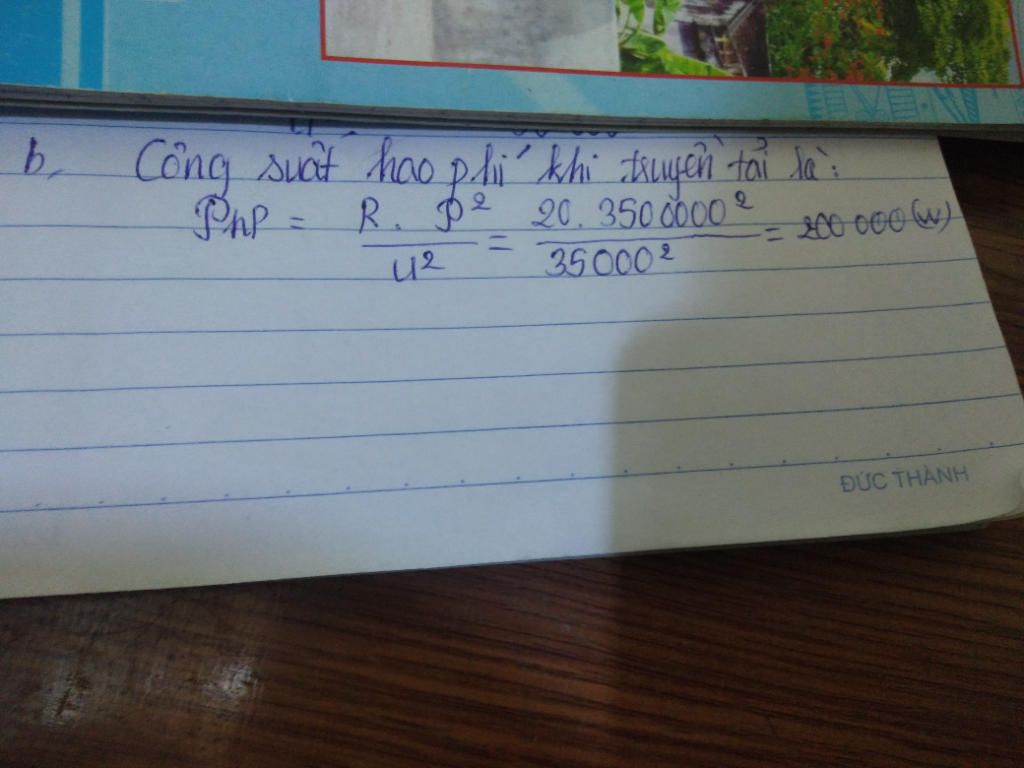 b, Công suất hao phí khi truyền tải là:
Php = R. P² / U² = 20. 3500000² / 35000² = 200 000 (W)
ĐỨC THÀNH